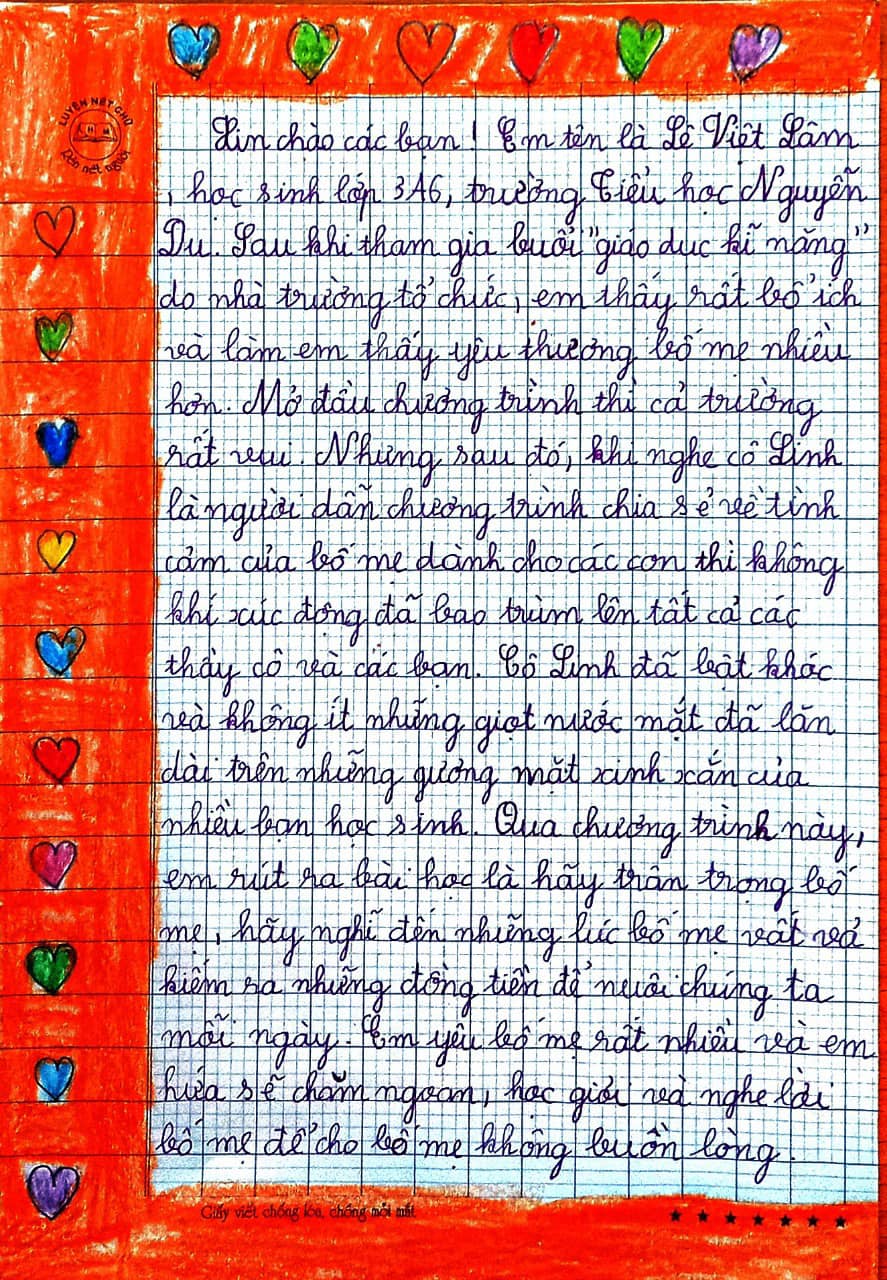 LUYỆN NÉT CHỮ
Rèn nét người
Xin chào các bạn! Em tên là Lê Việt Lâm
, học sinh lớp 3A6, trường Tiểu học Nguyễn
Du. Sau khi tham gia buổi "giáo dục kĩ năng"
do nhà trường tổ chức, em thấy rất bổ ích
và làm em thấy yêu thương bố mẹ nhiều
hơn. Mở đầu chương trình thì cả trường
rất vui. Nhưng sau đó, khi nghe cô Linh
là người dẫn chương trình chia sẻ về tình
cảm của bố mẹ dành cho các con thì không
khí xúc động đã bao trùm lên tất cả các
thầy cô và các bạn. Cô Linh đã bật khóc
và không ít những giọt nước mắt đã lăn
dài trên những gương mặt xinh xắn của
nhiều bạn học sinh. Qua chương trình này,
em rút ra bài học là hãy trân trọng bố
mẹ, hãy nghĩ đến những lúc bố mẹ vất vả
kiếm ra những đồng tiền để nuôi chúng ta
mỗi ngày. Em yêu bố mẹ rất nhiều và em
hứa sẽ chăm ngoan, học giỏi và nghe lời
bố mẹ để cho bố mẹ không buồn lòng.
Giấy viết chống lóa, chống mỏi mắt